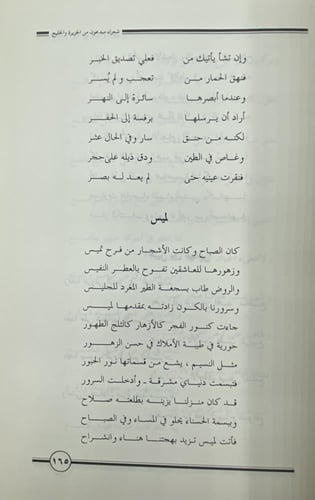 شعراء مبدعون من الجزيرة والخليج
وإن تشأ يأتيك من فعلي تصديق الخبر
فنهق الحمار من تعجب ولم يُسَر
وعندما أبصرها سائرة إلى النهر
أراد أن يرسلها برفسة إلى الحفر
لكنه من حنق سار وفي الحال عثر
وغاص في الطين ودق ذيله على حجر
فنقرت عينيه حتى لم يعد له بصر
لميس
كان الصباح وكانت الأشجار من فرح تميس
وزهورها للعاشقين تفوح بالعطر النفيس
والروض طاب بسجعة الطير المغرد للجليس
وسرورنا بالكون زادته بمقدمها لميس
جاءت كنور الفجر كالأزهار كالثلج الطهور
حورية في طيبة الأملاك في حسن الزهور
مثل النسيم ، يشع من قسماتها نور الحبور
فتبسمت دنياي مشرقة - وأدخلت السرور
قد كان منزلنا يزينه بطلعته صلاح
وبسمة الحسناء يحلو في المساء وفي الصباح
فأتت لميس تزيد بهجتنا هناء وانشراح
١٦٥